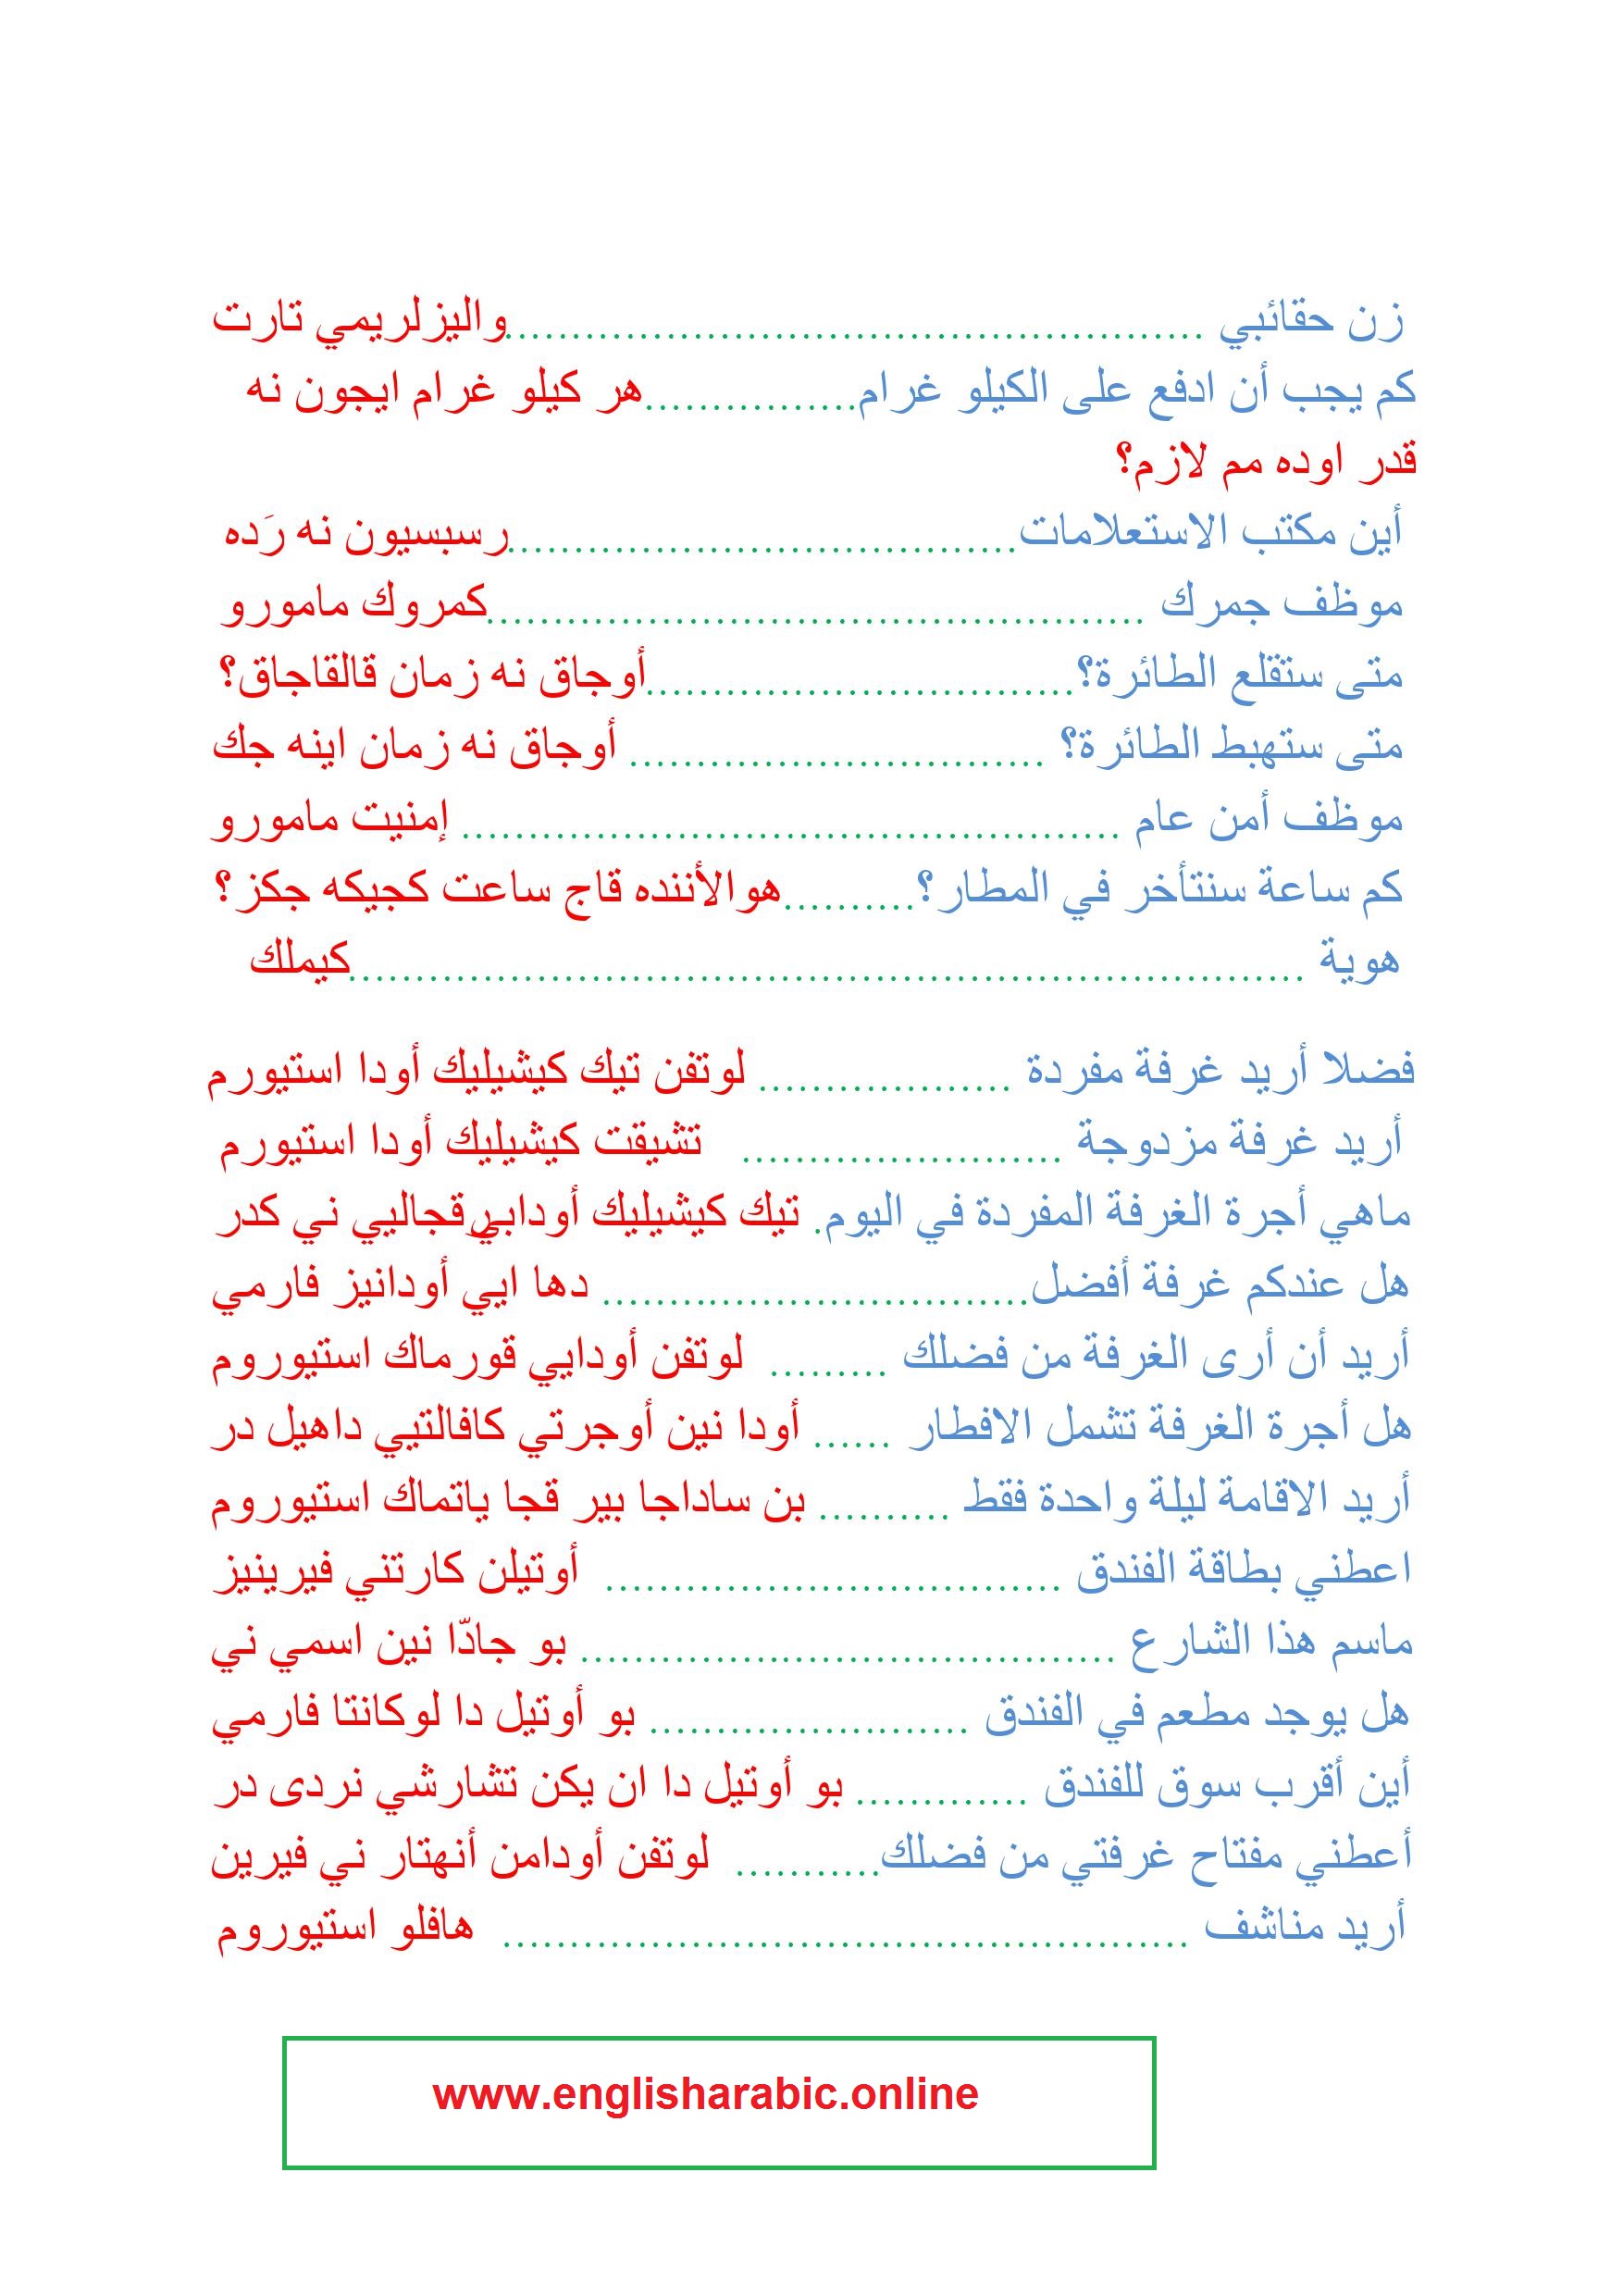 زن حقائبي ....................................................واليزلريمي تارت
كم يجب أن ادفع على الكيلو غرام................هر كيلو غرام ايجون نه
قدر اوده مم لازم؟
أين مكتب الاستعلامات......................................رسبسيون نه رَده
موظف جمرك .................................................كمروك مامورو
متى ستقلع الطائرة؟................................أوجاق نه زمان قالقاجاق؟
متى ستهبط الطائرة؟ ............................... أوجاق نه زمان اينه جك
موظف أمن عام ................................................. إمنيت مامورو
كم ساعة سنتأخر في المطار؟..........هوالأننده قاج ساعت كجيكه جكز؟
هوية .......................................................................كيملك
فضلا أريد غرفة مفردة ................... لوتفن تيك كيشيليك أودا استيورم
أريد غرفة مزدوجة ........................ تشيقت كيشيليك أودا استيورم
ماهي أجرة الغرفة المفردة في اليوم. تيك كيشيليك أودابيرقجاليي ني كدر
هل عندكم غرفة أفضل................................ دها ايي أودانيز فارمي
أريد أن أرى الغرفة من فضلك ......... لوتفن أودايي قورماك استيوروم
هل أجرة الغرفة تشمل الافطار ...... أودا نين أوجرتي كافالتيي داهيل در
أريد الاقامة ليلة واحدة فقط .......... بن ساداجا بير قجا ياتماك استيوروم
اعطني بطاقة الفندق .................................. أوتيلن كارتني فيرينيز
ماسم هذا الشارع ........................................ بو جادّا نين اسمي ني
هل يوجد مطعم في الفندق ........................ بو أوتيل دا لوكانتا فارمي
أين أقرب سوق للفندق ............. بو أوتيل دا ان يكن تشارشي نردى در
أعطني مفتاح غرفتي من فضلك........... لوتفن أودامن أنهتار ني فيرين
أريد مناشف ................................................... هافلو استيوروم
www.englisharabic.online